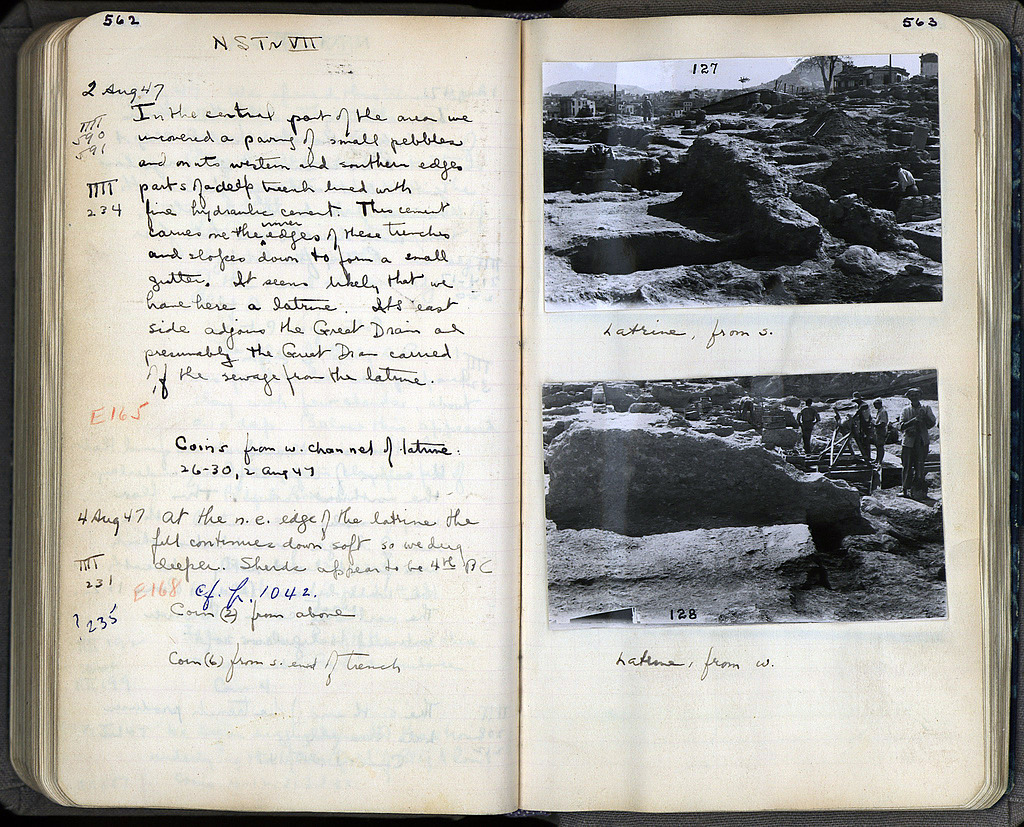 562
NSTr VII
2 Aug 47
In the central part of the area we
590
591
uncovered a paving of small pebbles
and on its western and southern edges
234
parts of a deep trench lined with
fine hydraulic cement. This cement
carries over the inner edges of these trenches
and slopes down to form a small
gutter. It seems likely that we
have here a latrine. Its east
side adjoins the Great Drain and
presumably the Great Drain carried
off the sewage from the latrine.
E165
Coins from w. channel of latrine.
26-30, 2 Aug 47
4 Aug 47 At the n.e. edge of the latrine the
fill continues down soft so we dug
deeper. Sherds appear to be 4th BC
231
E168 cf. p. 1042.
? 235
Coin (2) from above
Coin (6) from s. end of trench
563
127
Latrine, from s.
128
Latrine, from w.